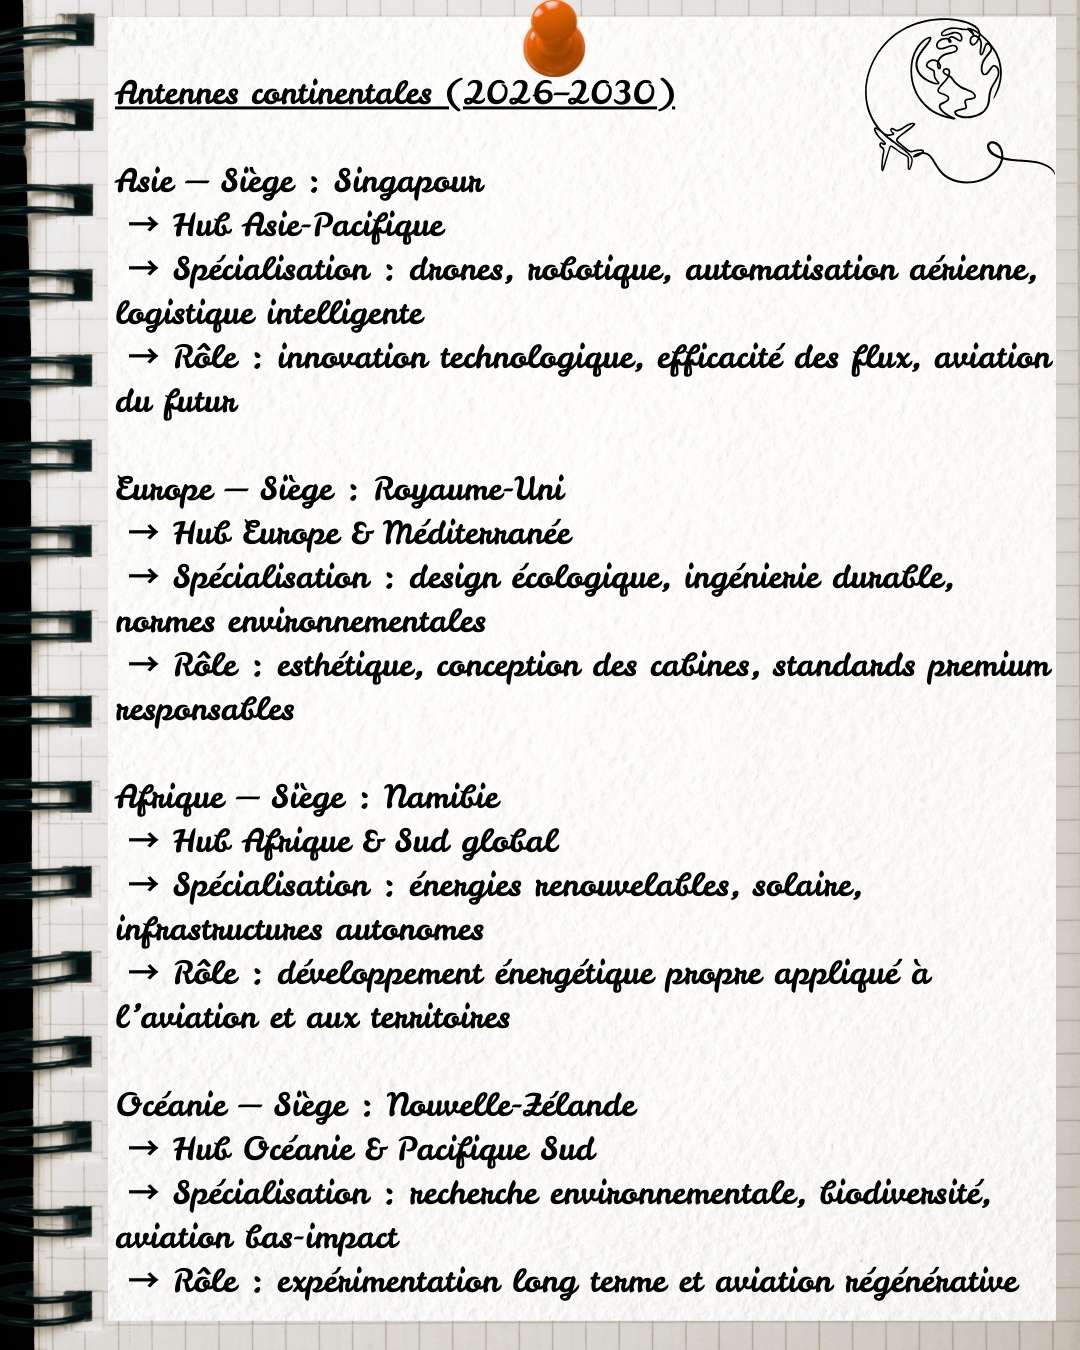 Antennes continentales (2026–2030)
Asie — Siège : Singapour
→ Hub Asie-Pacifique
→ Spécialisation : drones, robotique, automatisation aérienne,
logistique intelligente
→ Rôle : innovation technologique, efficacité des flux, aviation
du futur
Europe — Siège : Royaume-Uni
→ Hub Europe & Méditerranée
→ Spécialisation : design écologique, ingénierie durable,
normes environnementales
→ Rôle : esthétique, conception des cabines, standards premium
responsables
Afrique — Siège : Namibie
→ Hub Afrique & Sud global
→ Spécialisation : énergies renouvelables, solaire,
infrastructures autonomes
→ Rôle : développement énergétique propre appliqué à
l’aviation et aux territoires
Océanie — Siège : Nouvelle-Zélande
→ Hub Océanie & Pacifique Sud
→ Spécialisation : recherche environnementale, biodiversité,
aviation bas-impact
→ Rôle : expérimentation long terme et aviation régénérative